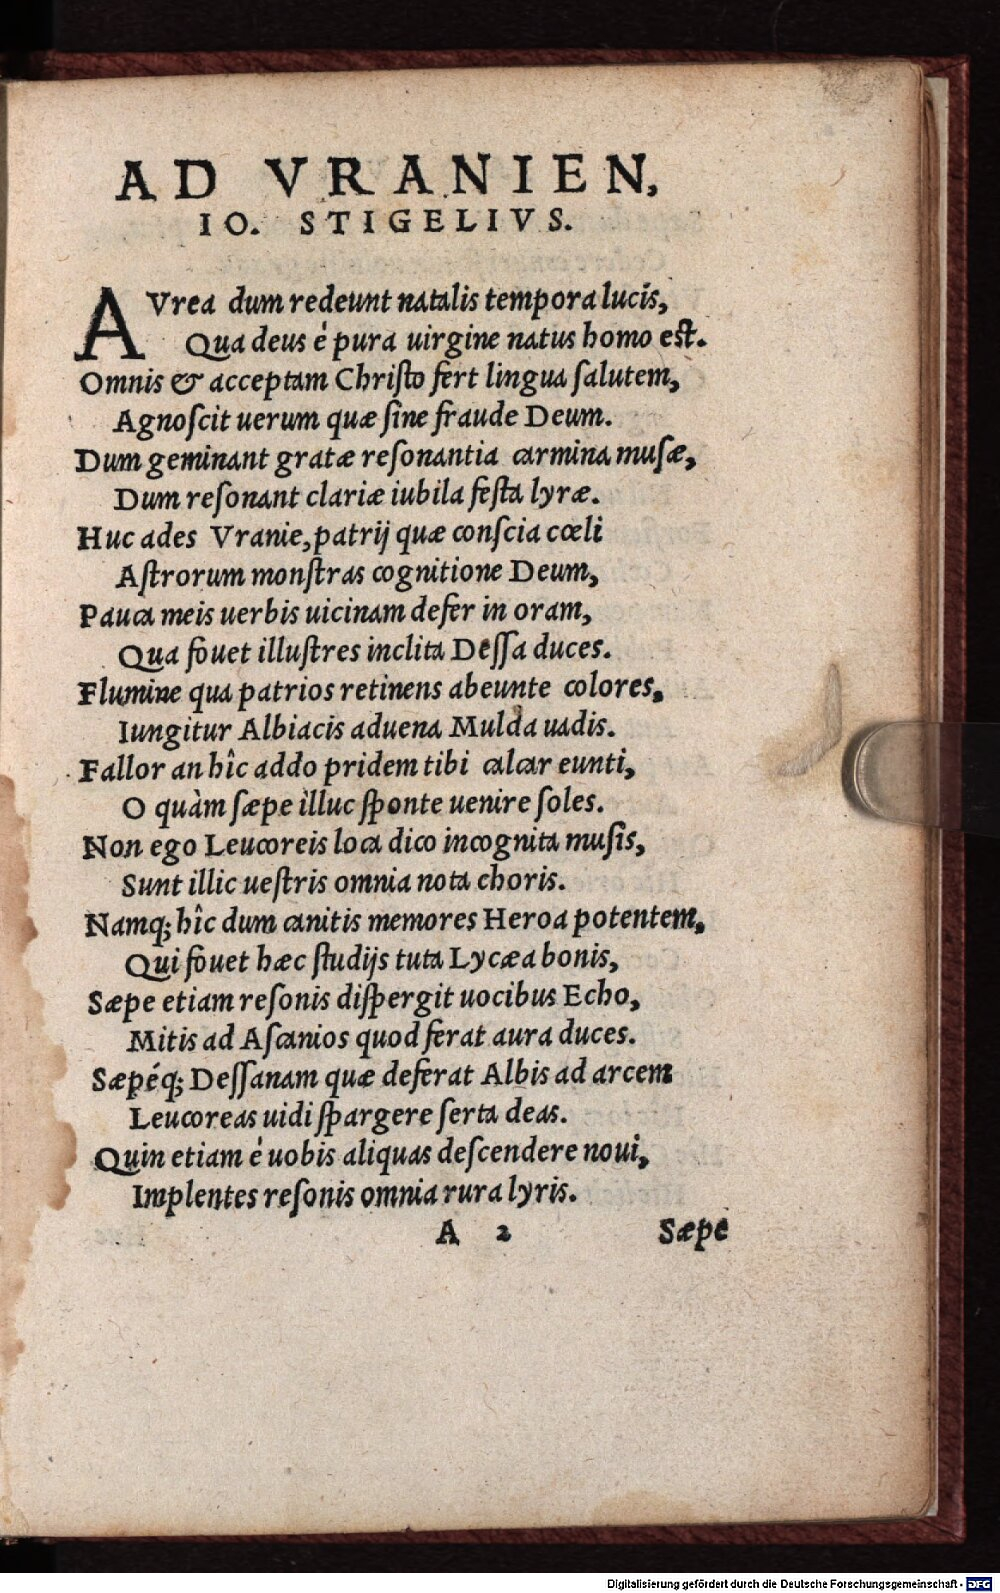 AD VRANIEN,
IO. STIGELIVS.
AVrea dum redeunt natalis tempora lucis,
Qua deus è pura uirgine natus homo est.
Omnis & acceptam Christo fert lingua salutem,
Agnoscit uerum quæ sine fraude Deum.
Dum geminant gratæ resonantia carmina musæ,
Dum resonant clariæ iubila festa lyræ.
Huc ades Vranie, patrij quæ conscia cœli
Astrorum monstras cognitione Deum,
Pauca meis uerbis uicinam defer in oram,
Qua fouet illustres inclita Dessa duces.
Flumine qua patrios retinens abeunte colores,
Iungitur Albiacis aduena Mulda uadis.
Fallor an hîc addo pridem tibi calcar eunti,
O quàm sæpe illuc sponte uenire soles.
Non ego Leucoreis loca dico incognita musis,
Sunt illic uestris omnia nota choris.
Namq; hîc dum canitis memores Heroa potentem,
Qui fouet hæc studijs tuta Lycæa bonis,
Sæpe etiam resonis dispergit uocibus Echo,
Mitis ad Ascanios quod ferat aura duces.
Sæpéq; Dessanam quæ deferat Albis ad arcem
Leucoreas uidi spargere serta deas.
Quin etiam è uobis aliquas descendere noui,
Implentes resonis omnia rura lyris.
A 2 Sæpe
Digitalisierung gefördert durch die Deutsche Forschungsgemeinschaft - DFG